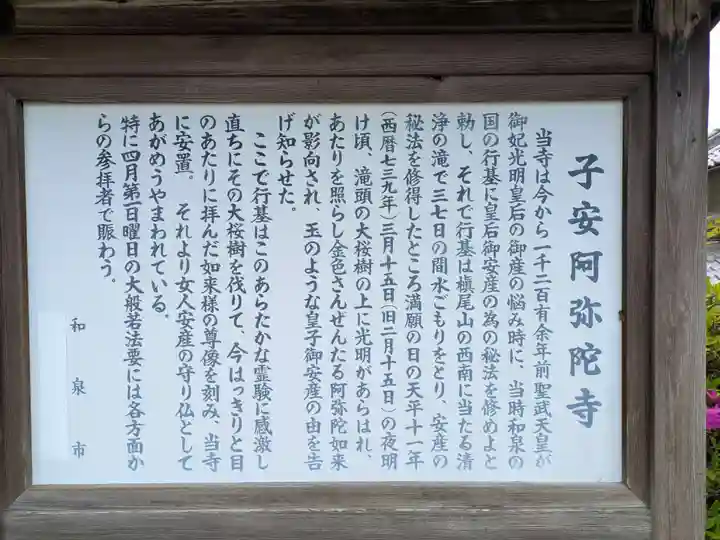 子安阿弥陀寺
当寺は今から一千二百有余年前聖武天皇が
御妃光明皇后の御産の悩み時に、当時和泉の
国の行基に皇后御安産の為の秘法を修めよと
勅し、それで行基は槇尾山の西南に当たる清
浄の滝で三七日の間水ごもりをとり、安産の
秘法を修得したところ満願の日の天平十一年
(西暦七三九年)三月十五日(旧二月十五日)の夜明
け頃、滝頭の大桜樹の上に光明があらはれ、
あたりを照らし金色さんぜんたる阿弥陀如来
が影向され、玉のような皇子御安産の由を告
げ知らせた。
ここで行基はこのあらたかな霊験に感激し
直ちにその大桜樹を伐りて、今はっきりと目
のあたりに拝んだ如来様の尊像を刻み、当寺
に安置。 それより女人安産の守り仏として
あがめうやまわれている。
特に四月第一日曜日の大般若法要には各方面か
らの参拝者で賑わう。
和泉市